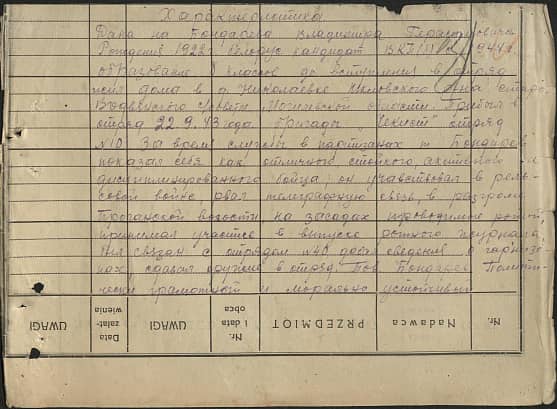 Характеристика
Дана на Бондарева Владимира Герасимовича
Рождения 1922 г белорус кандидат ВКП(б) с 1944 г.
образование 8 классов до вступления в отряд
жил дома в д. Николаевке
области. Прибыл в
отряд 22.9.43 года бригады "Чекист" отряд
№10 За время службы в партизанах т Бондарев
показал себя как отличного, стойкого, активного и
дисциплинированного бойца; он учавствовал в рель-
совой войне, рвал телеграфную связь, в разгроме
волости на засадах проводимые ротой,
принимал участие в выпуске ротного журнала.
Был связан с отрядом №10 давал сведения о гарнизо-
нах, сдавал оружие в отряд. Тов Бондарев Полити-
чески грамотный и морально устойчивый
Nr.
Nadawca
PRZEDMIOT
Nr. i data obca
UWAGI
Data załat- wienia
UWAGI